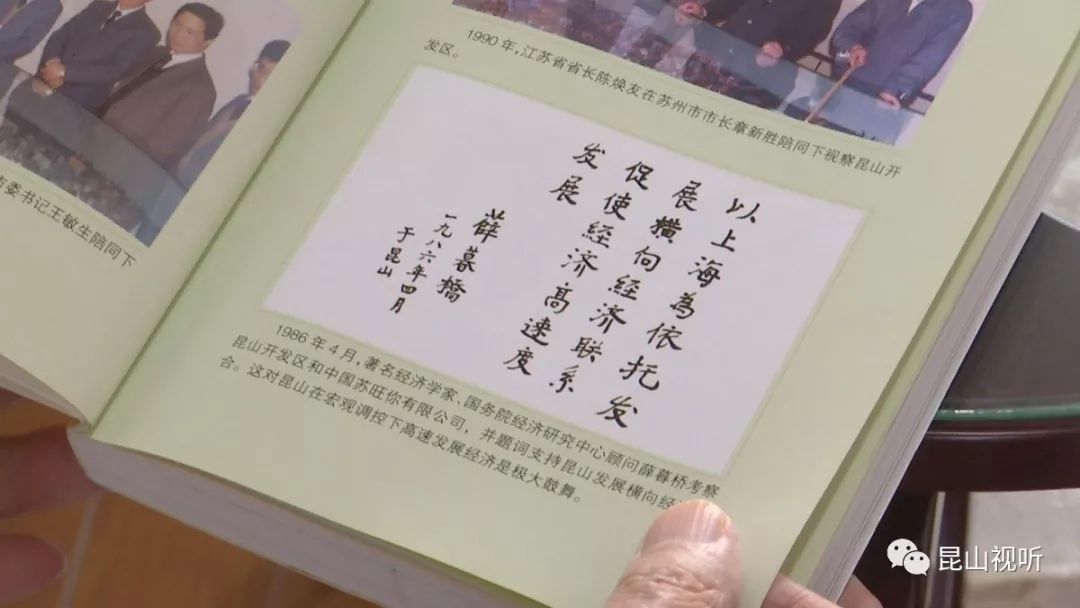 委书记王敏生陪同下
1990年，江苏省省长陈焕友在苏州市市长章新胜陪同下视察昆山开
发区。
以上海為依托发
展横向经济联系
促使经济高速度
发展
薛暮橋
一九八六年四月
于昆山
1986年4月，著名经济学家、国务院经济研究中心顾问薛暮桥考察
昆山开发区和中国苏旺你有限公司，并题词支持昆山发展横向经
合。这对昆山在宏观调控下高速发展经济是极大鼓舞。
昆山视听